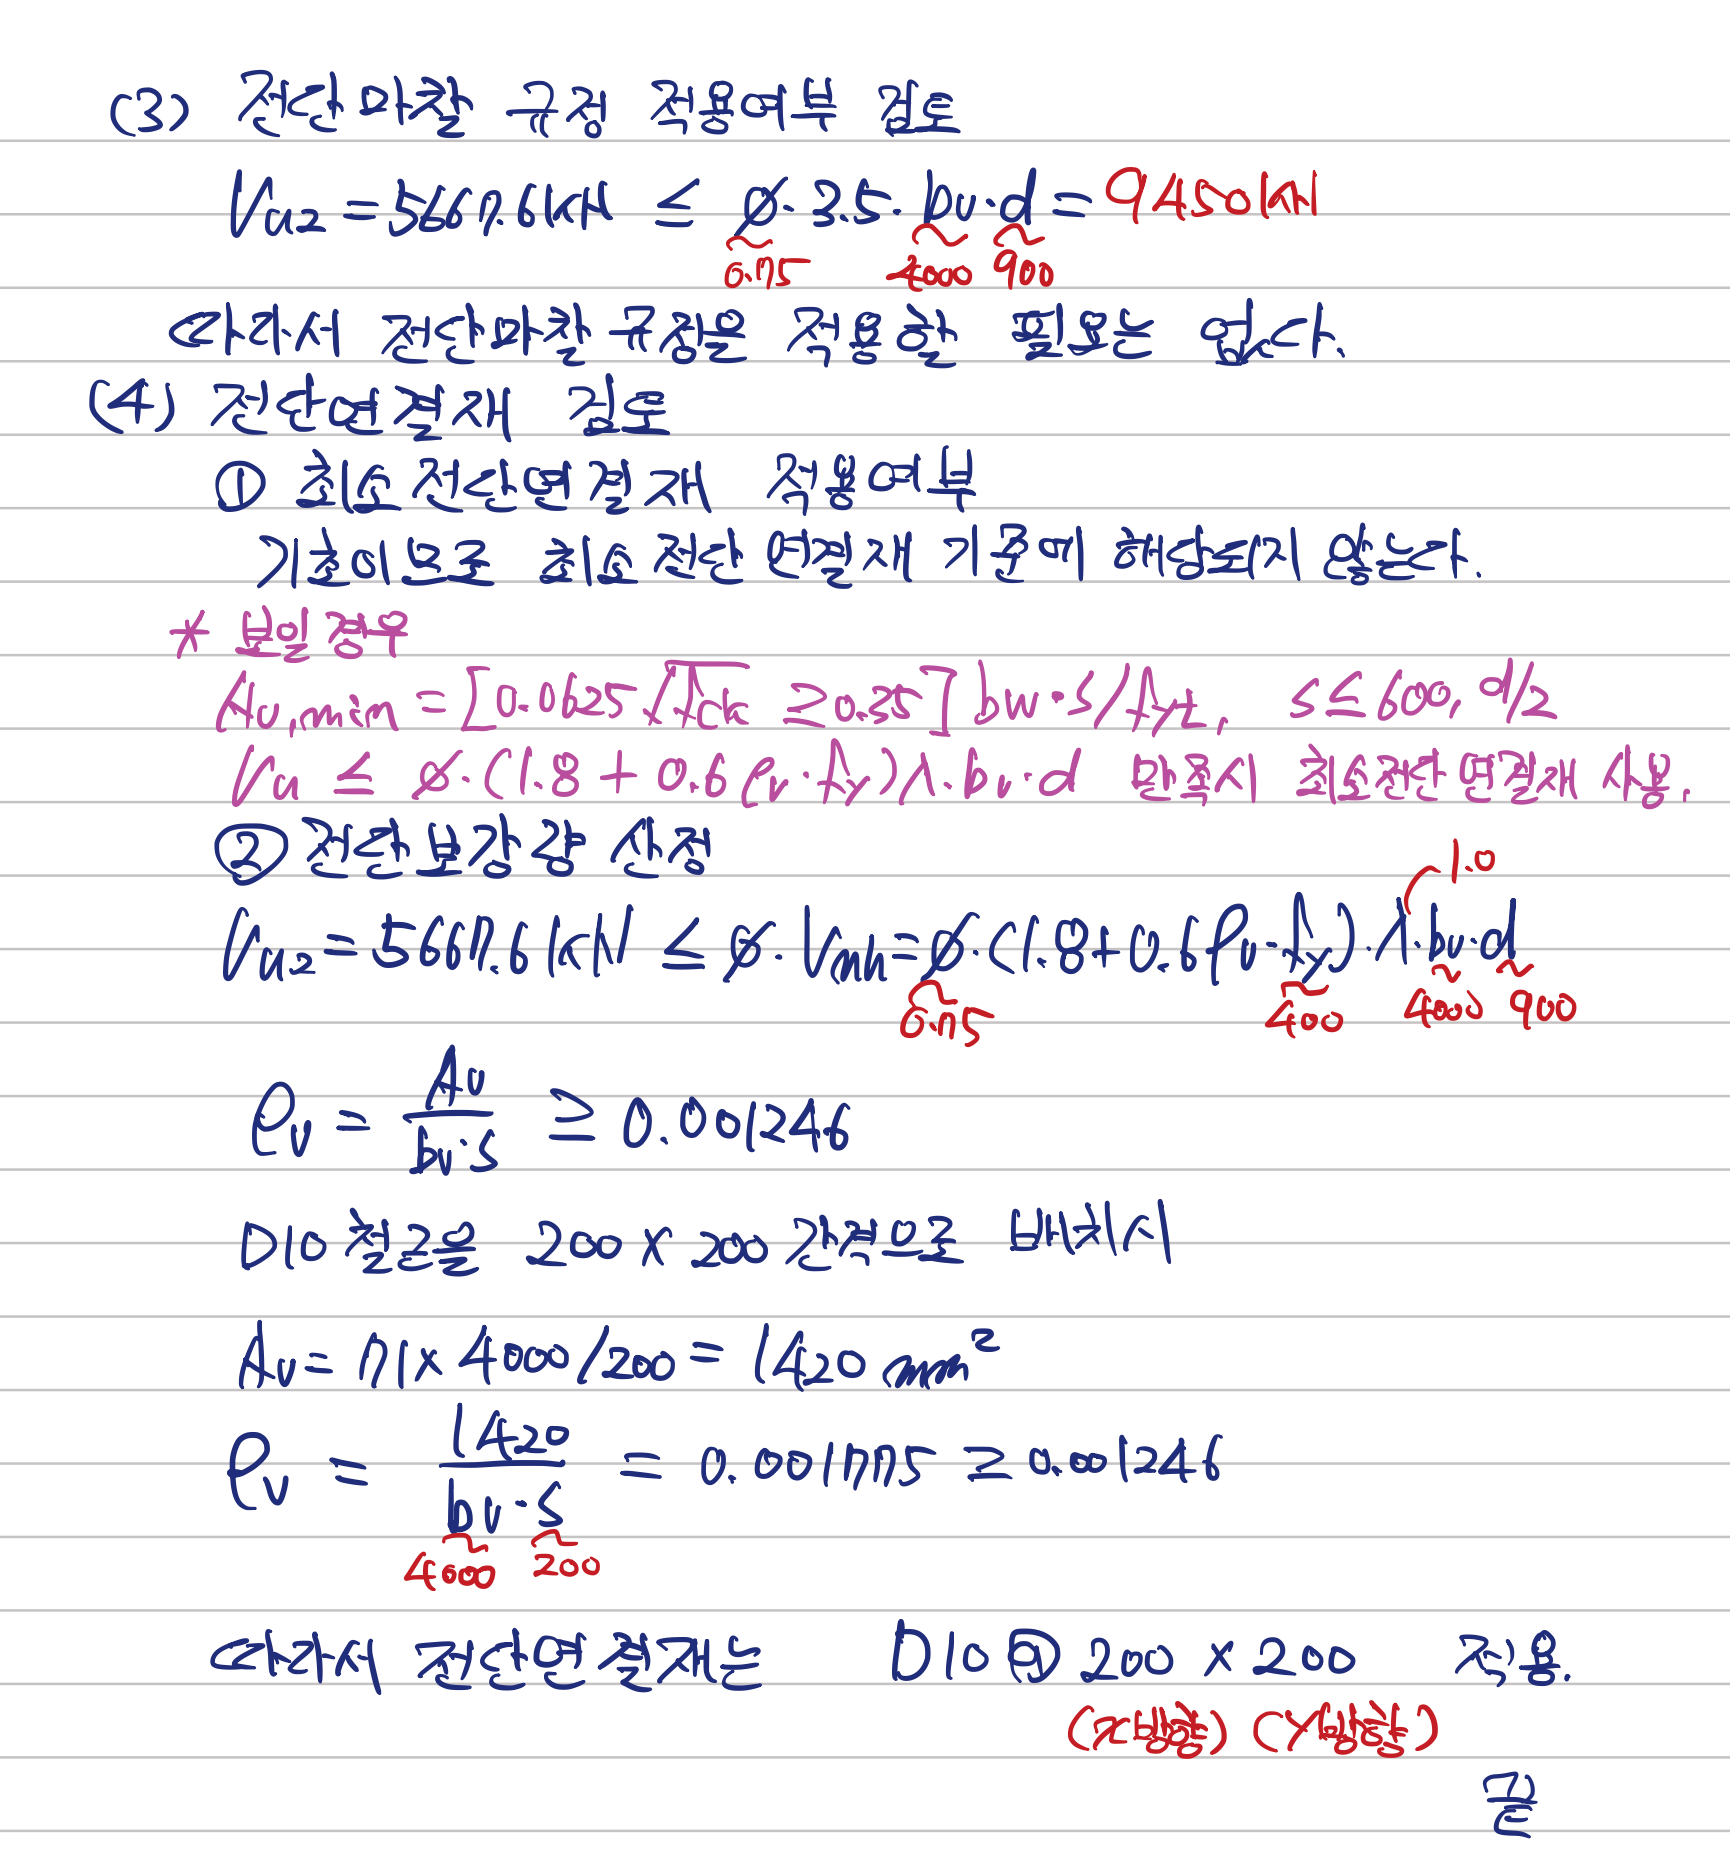 (3) 전단마찰 규정 적용여부 검토
Vu2 = 5667.6kN ≤ ø·3.5·bv·d = 9450kN
0.75 4000 900
따라서 전단마찰 규정을 적용할 필요는 없다.
(4) 전단연결재 검토
① 최소전단연결재 적용여부
기초이므로 최소 전단연결재 기준에 해당되지 않는다.
* 보일경우
Av,min = [0.0625√fck ≥ 0.35] bw·s/fyt, s ≤ 600, d/2
Vu ≤ ø·(1.8 + 0.6ρv·fy)λ·bv·d 만족시 최소전단연결재 사용.
② 전단보강량 산정
1.0
Vu2 = 5667.6kN ≤ ø·Vnh = ø·(1.8+0.6ρv·fy)·λ·bv·d
0.75 400 4000 900
ρv = Av / bv·s ≥ 0.001246
D10 철근을 200 x 200 간격으로 배치시
Av = 71 x 4000/200 = 1420 mm²
ρv = 1420 / bv·s = 0.001775 ≥ 0.001246
4000 200
따라서 전단연결재는 D10 @ 200 x 200 적용.
(x방향) (y방향)
끝